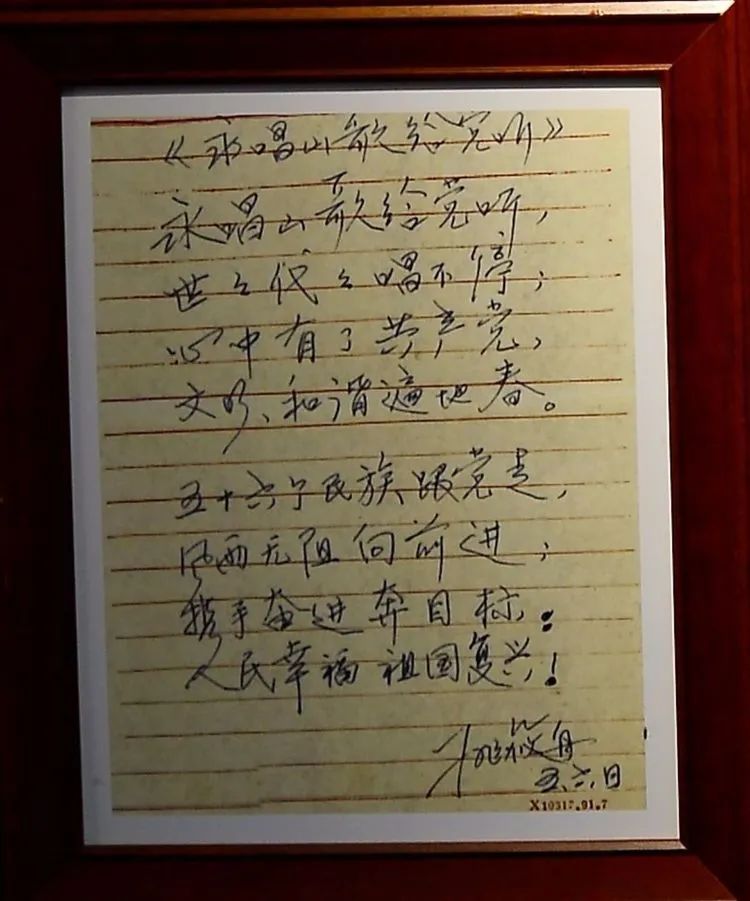 《永唱山歌给党听》
永唱山歌给党听，
世々代々唱不停；
心中有了共产党，
文明、和谐遍地春。
五十六个民族跟党走，
风雨无阻向前进；
携手奋进奔目标：
人民幸福祖国复兴！
姚筱舟
五.六.日
X10317.91.7